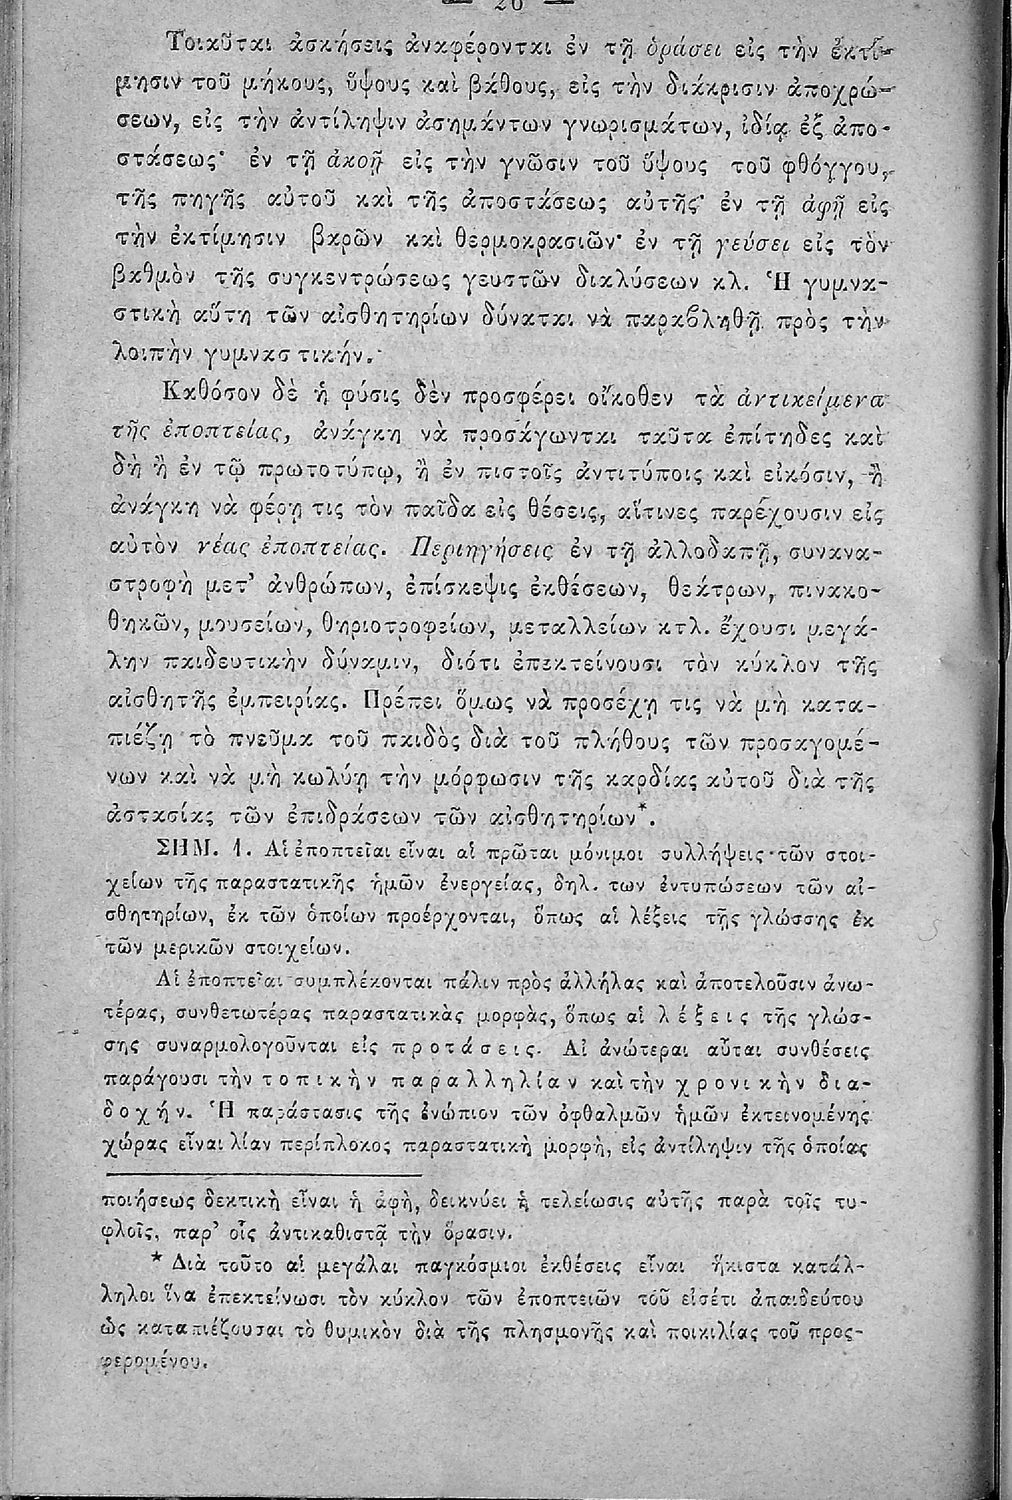 — 20 —
Τοιαῦται ἀσκήσεις ἀναφέρονται ἐν τῇ ὁράσει εἰς τὴν ἐκτί-
μησιν τοῦ μήκους, ὕψους καὶ βάθους, εἰς τὴν διάκρισιν ἀποχρώ-
σεων, εἰς τὴν ἀντίληψιν ἀσημάντων γνωρισμάτων, ἰδίᾳ ἐξ ἀπο-
στάσεως· ἐν τῇ ἀκοῇ εἰς τὴν γνῶσιν τοῦ ὕψους τοῦ φθόγγου,
τῆς πηγῆς αὐτοῦ καὶ τῆς ἀποστάσεως αὐτῆς· ἐν τῇ ἁφῇ εἰς
τὴν ἐκτίμησιν βαρῶν καὶ θερμοκρασιῶν· ἐν τῇ γεύσει εἰς τὸν
βαθμὸν τῆς συγκεντρώσεως γευστῶν διαλύσεων κλ. Ἡ γυμνα-
στικὴ αὕτη τῶν αἰσθητηρίων δύναται νὰ παραβληθῇ πρὸς τὴν
λοιπὴν γυμναστικήν.
Καθόσον δὲ ἡ φύσις δὲν προσφέρει οἴκοθεν τὰ ἀντικείμενα
τῆς ἐποπτείας, ἀνάγκη νὰ προσάγωνται ταῦτα ἐπίτηδες καὶ
δὴ ἢ ἐν τῷ πρωτοτύπῳ, ἢ ἐν πιστοῖς ἀντιτύποις καὶ εἰκόσιν, ἢ
ἀνάγκη νὰ φέρῃ τις τὸν παῖδα εἰς θέσεις, αἵτινες παρέχουσιν εἰς
αὐτὸν νέας ἐποπτείας. Περιηγήσεις ἐν τῇ ἀλλοδαπῇ, συνανα-
στροφὴ μετ’ ἀνθρώπων, ἐπίσκεψις ἐκθέσεων, θεάτρων, πινακο-
θηκῶν, μουσείων, θηριοτροφείων, μεταλλείων κτλ. ἔχουσι μεγά-
λην παιδευτικὴν δύναμιν, διότι ἐπεκτείνουσι τὸν κύκλον τῆς
αἰσθητῆς ἐμπειρίας. Πρέπει ὅμως νὰ προσέχῃ τις νὰ μὴ κατα-
πιέζῃ τὸ πνεῦμα τοῦ παιδὸς διὰ τοῦ πλήθους τῶν προσαγομέ-
νων καὶ νὰ μὴ κωλύῃ τὴν μόρφωσιν τῆς καρδίας αὐτοῦ διὰ τῆς
ἀστασίας τῶν ἐπιδράσεων τῶν αἰσθητηρίων*.
ΣΗΜ. 1. Αἱ ἐποπτεῖαι εἶναι αἱ πρῶται μόνιμοι συλλήψεις τῶν στοι-
χείων τῆς παραστατικῆς ἡμῶν ἐνεργείας, δηλ. των ἐντυπώσεων τῶν αἰ-
σθητηρίων, ἐκ τῶν ὁποίων προέρχονται, ὅπως αἱ λέξεις τῆς γλώσσης ἐκ
τῶν μερικῶν στοιχείων.
Αἱ ἐποπτεῖαι συμπλέκονται πάλιν πρὸς ἀλλήλας καὶ ἀποτελοῦσιν ἀνω-
τέρας, συνθετωτέρας παραστατικὰς μορφὰς, ὅπως αἱ λέξεις τῆς γλώσ-
σης συναρμολογοῦνται εἰς προτάσεις. Αἱ ἀνώτεραι αὗται συνθέσεις
παράγουσι τὴν τοπικὴν παραλληλίαν καὶ τὴν χρονικὴν δια-
δοχήν. Ἡ παράστασις τῆς ἐνώπιον τῶν ὀφθαλμῶν ἡμῶν ἐκτεινομένης
χώρας εἶναι λίαν περίπλοκος παραστατικὴ μορφὴ, εἰς ἀντίληψιν τῆς ὁποίας
ποιήσεως δεκτικὴ εἶναι ἡ ἁφὴ, δεικνύει ἡ τελείωσις αὐτῆς παρὰ τοῖς τυ-
φλοῖς, παρ’ οἷς ἀντικαθιστᾷ τὴν ὅρασιν.
* Διὰ τοῦτο αἱ μεγάλαι παγκόσμιοι ἐκθέσεις εἶναι ἥκιστα κατάλ-
ληλοι ἵνα ἐπεκτείνωσι τὸν κύκλον τῶν ἐποπτειῶν τοῦ εἰσέτι ἀπαιδεύτου
ὡς καταπιέζουσαι τὸ θυμικὸν διὰ τῆς πλησμονῆς καὶ ποικιλίας τοῦ προς-
φερομένου.